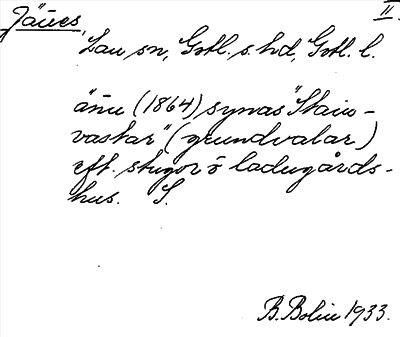 Jäues II.
Lau sn, Gotl. s. hd, Gotl. l.
ännu (1864) synas "Stain-
vastar" (grundvalar)
eft. stugor o ladugårds-
hus. S.
B. Bolin 1933.